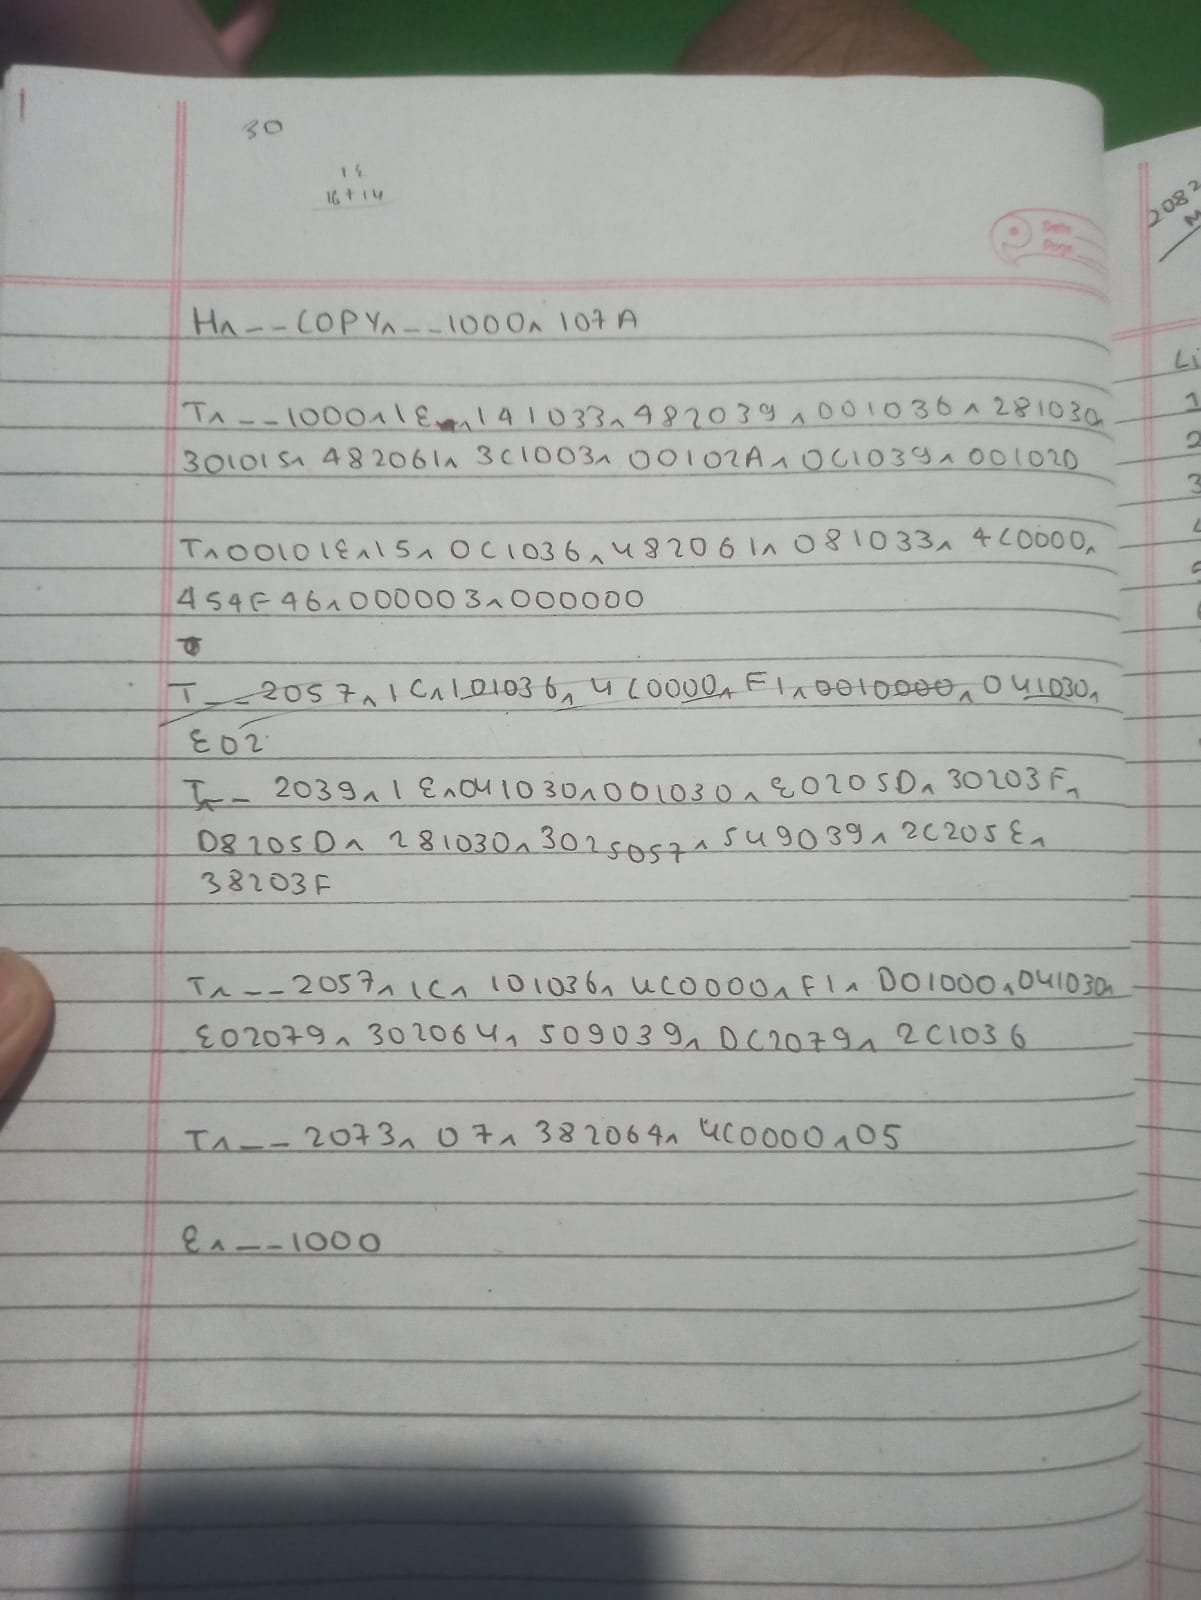 30
1E
16+14
Date
Page
2082
H^--COPY^--1000^107A
T^--1000^1E^141033^482039^001036^281030^
301015^482061^3C1003^00102A^0C1039^00102D
T^00101E^15^0C1036^482061^081033^4C0000^
454F46^000003^000000
T--2057^1C^101036^4C0000^F1^0010000^041030^
E02
T-- 2039^1E^041030^001030^E0205D^30203F^
D8205D^281030^3025057^549039^2C205E^
38203F
T^--2057^1C^101036^4C0000^F1^001000^041030^
E02079^302064^509039^DC2079^2C1036
T^--2073^07^382064^4C0000^05
E^--1000
Li
1
2
3